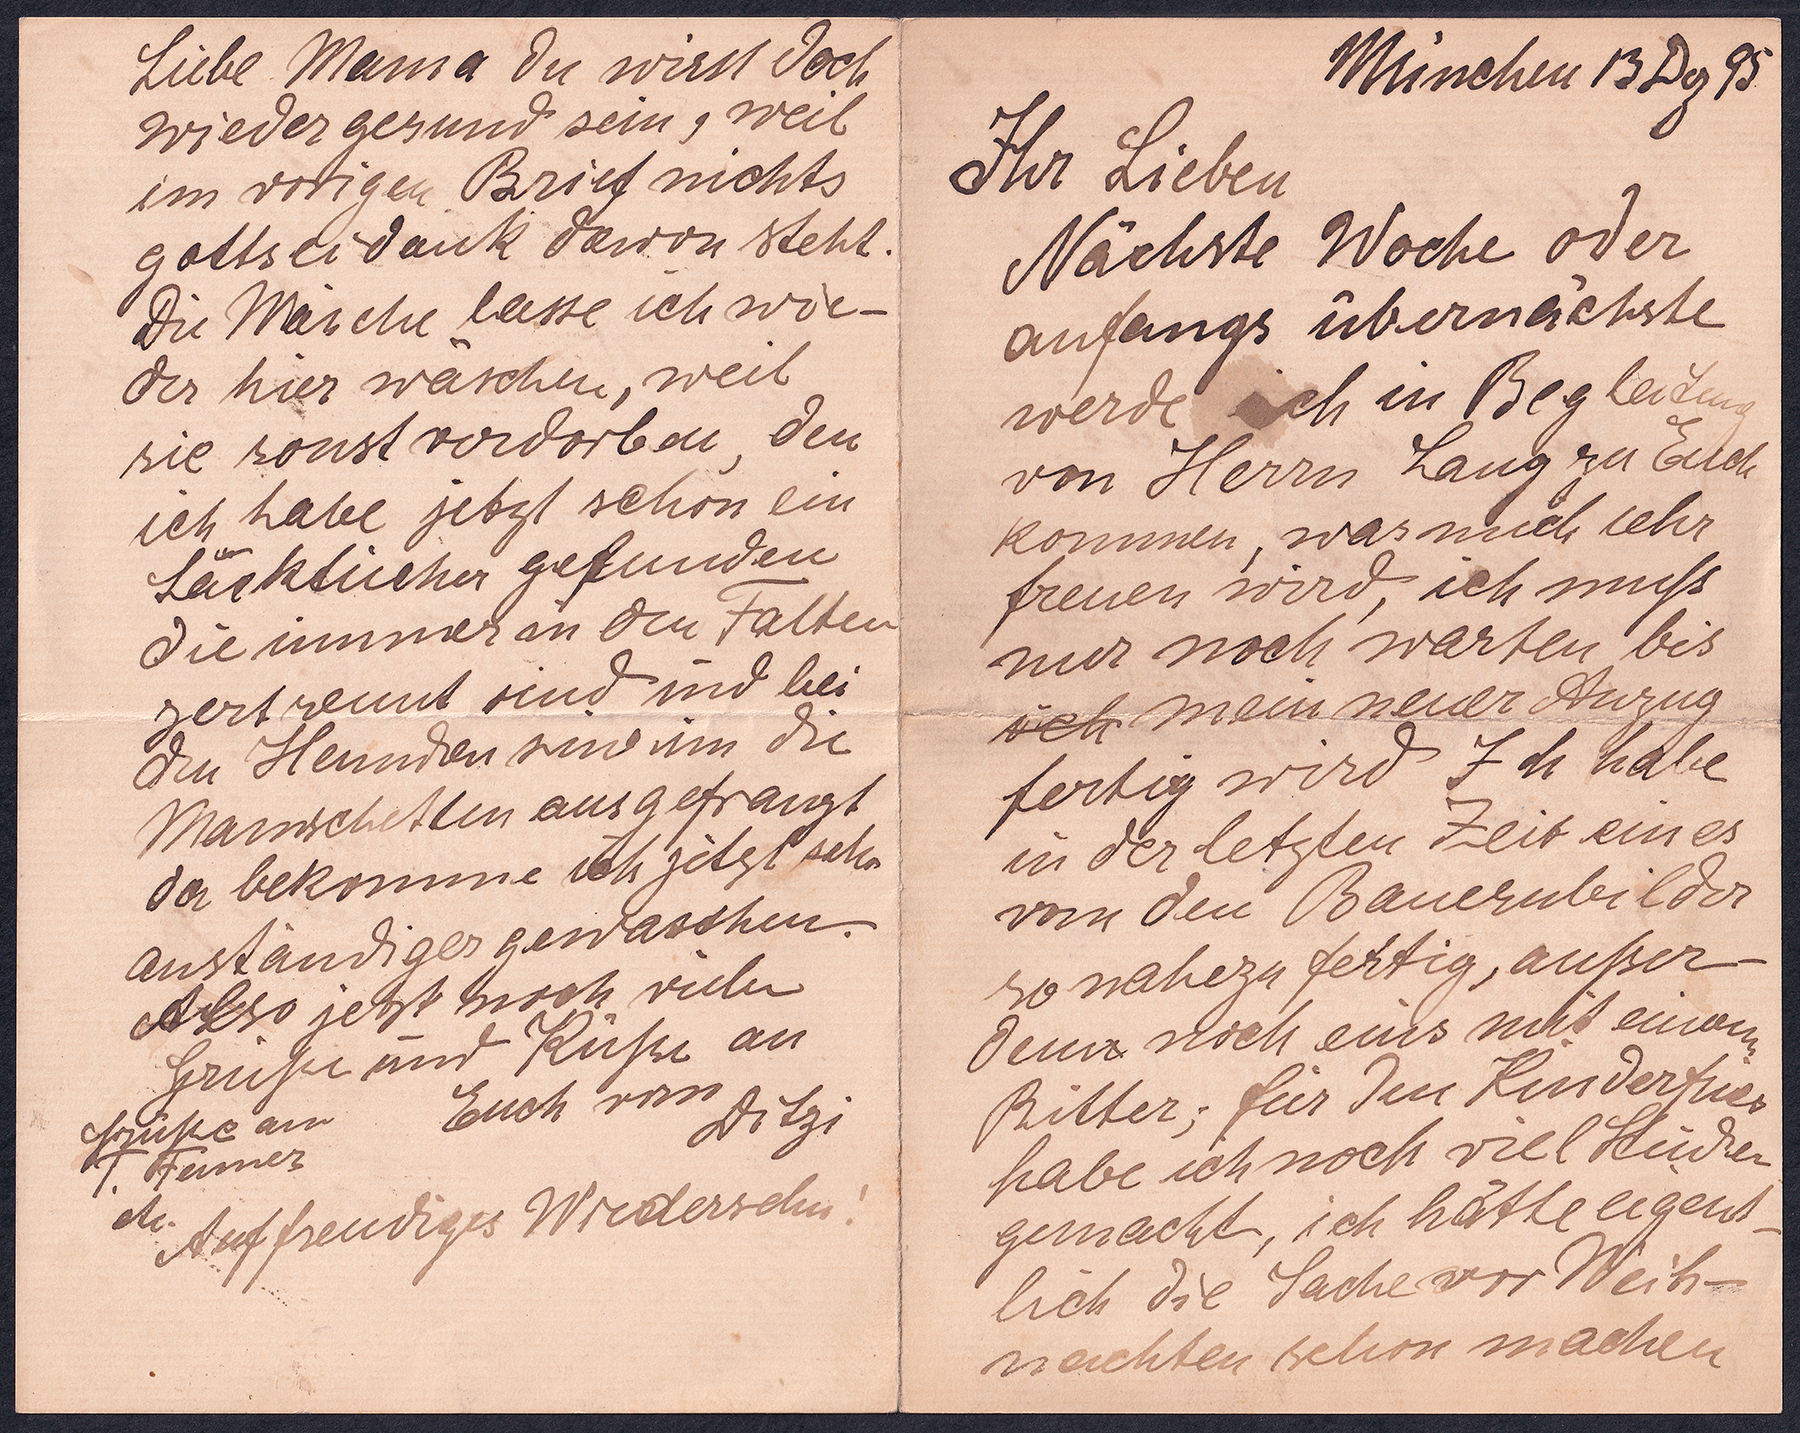 München 13 Dez 95
Ihr Lieben
Nächste Woche oder
anfangs übernächste
werde ich in Begleitung
von Herrn Lang zu Euch
kommen, was mich sehr
freuen wird, ich muß
nur noch warten bis
ich mein neuer Anzug
fertig wird Ich habe
in der letzten Zeit eines
von den Bauernbilder
so nahezu fertig, außer-
dem noch eins mit einem
Ritter; für den Kinderfries
habe ich noch viel Studien
gemacht, ich hätte eigent-
lich die Sache vor Weih-
nachten schon machen
Liebe Mama du wirst doch
wieder gesund sein, weil
im vorigen Brief nichts
gottseidank davon steht.
Die Wäsche lasse ich wie-
der hier wäschen, weil
sie sonst verdorben, den
ich habe jetzt schon ein
Säcktücher gefunden
die immer in den Falten
zertrennt sind und bei
den Hemden sind im die
Manschetten ausgefranzt
da bekomme ich jetzt sehr
anständiger gewaschen.
Also jetzt noch viele
Grüße und Küße an
Euch von
Ditzi
Grüße an
T.
etc.
Auf freudiges Wiedersehn!